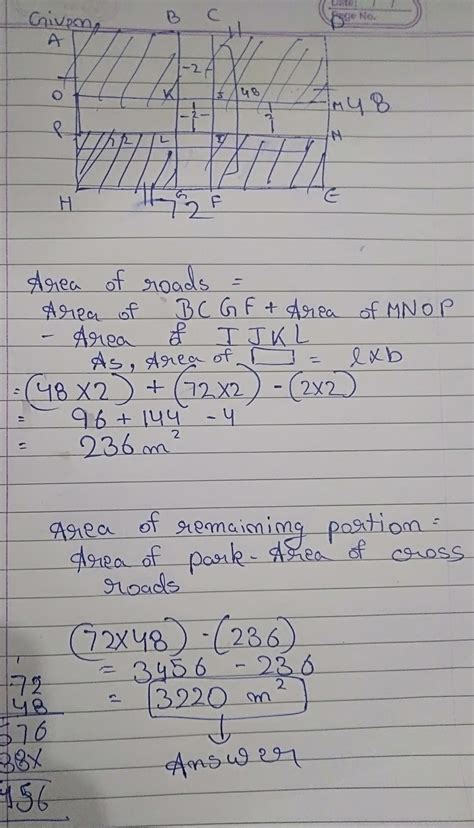 Date: / /
Page No.
Given,
B C D
A
-2
O K J 48 M 48
-2- 2
P 2 L I N
H G F E
72
Area of roads =
Area of BCGF + Area of MNOP
- Area of IJKL
As, Area of = l×b
= (48×2) + (72×2) - (2×2)
= 96 + 144 - 4
= 236 m²
Area of remaining portion =
Area of park - Area of cross
roads
(72×48) - (236)
= 3456 - 236
= 3220 m²
Answer
72
48
576
88×
456